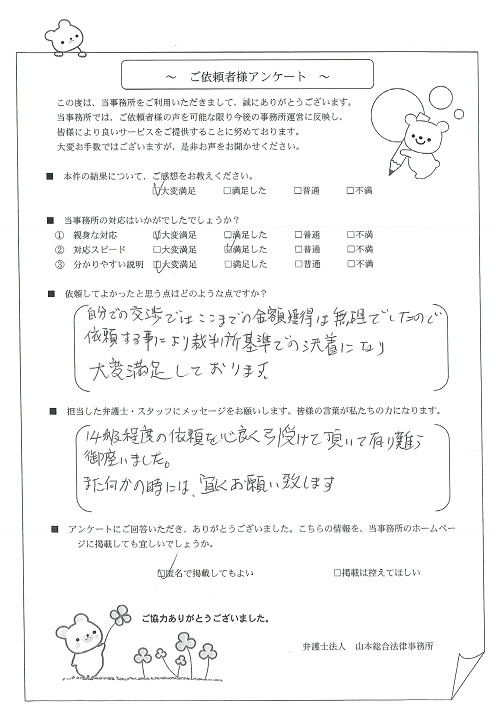 ～ ご依頼者様アンケート ～
この度は、当事務所をご利用いただきまして、誠にありがとうございます。
当事務所では、ご依頼者様の声を可能な限り今後の事務所運営に反映し、
皆様により良いサービスをご提供することに努めております。
大変お手数ではございますが、是非お声をお聞かせください。
■ 本件の結果について、ご感想をお教えください。
☑大変満足 □満足した □普通 □不満
■ 当事務所の対応はいかがでしたでしょうか？
① 親身な対応 ☑大変満足 □満足した □普通 □不満
② 対応スピード □大変満足 ☑満足した □普通 □不満
③ 分かりやすい説明 ☑大変満足 □満足した □普通 □不満
■ 依頼してよかったと思う点はどのような点ですか？
自分での交渉ではここまでの金額獲得は無理でしたので
依頼する事により裁判所基準での決着になり
大変満足しております。
■ 担当した弁護士・スタッフにメッセージをお願いします。皆様の言葉が私たちの力になります。
14級程度の依頼を心良く引受けて頂いて有り難う
御座いました。
また何かの時には、宜しくお願い致します
■ アンケートにご回答いただき、ありがとうございました。こちらの情報を、当事務所のホームペー
ジに掲載しても宜しいでしょうか。
☑匿名で掲載してもよい □掲載は控えてほしい
ご協力ありがとうございました。
弁護士法人 山本総合法律事務所